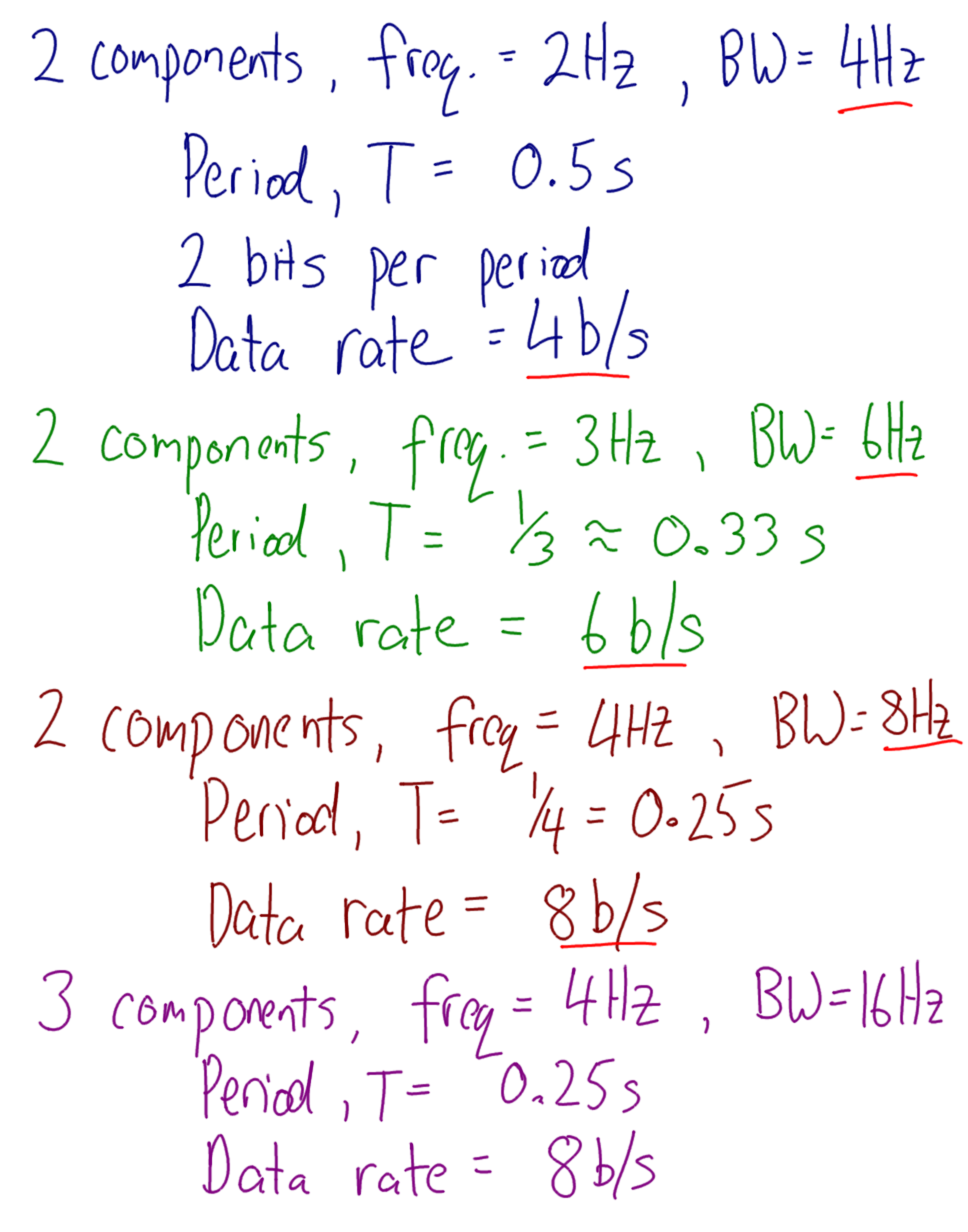 2 components, freq. = 2Hz, BW = 4Hz
Period, T = 0.5 s
2 bits per period
Data rate = 4b/s
2 components, freq. = 3Hz, BW = 6Hz
Period, T = 1/3 ≈ 0.33 s
Data rate = 6 b/s
2 components, freq = 4Hz, BW = 8Hz
Period, T = 1/4 = 0.25 s
Data rate = 8b/s
3 components, freq = 4Hz, BW = 16Hz
Period, T = 0.25 s
Data rate = 8b/s